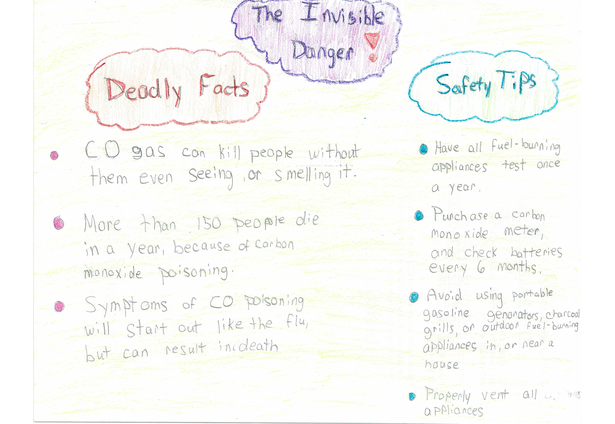 The Invisible
Danger!
Deadly Facts
CO gas can kill people without
them even seeing, or smelling it.
More than 150 people die
in a year, because of carbon
monoxide poisoning.
Symptoms of CO poisoning
will start out like the flu,
but can result in death
Safety Tips
Have all fuel-burning
appliances test once
a year.
Purchase a carbon
monoxide meter,
and check batteries
every 6 months.
Avoid using portable
gasoline generators, charcoal
grills, or outdoor fuel-burning
appliances in, or near a
house
Properly vent all
appliances